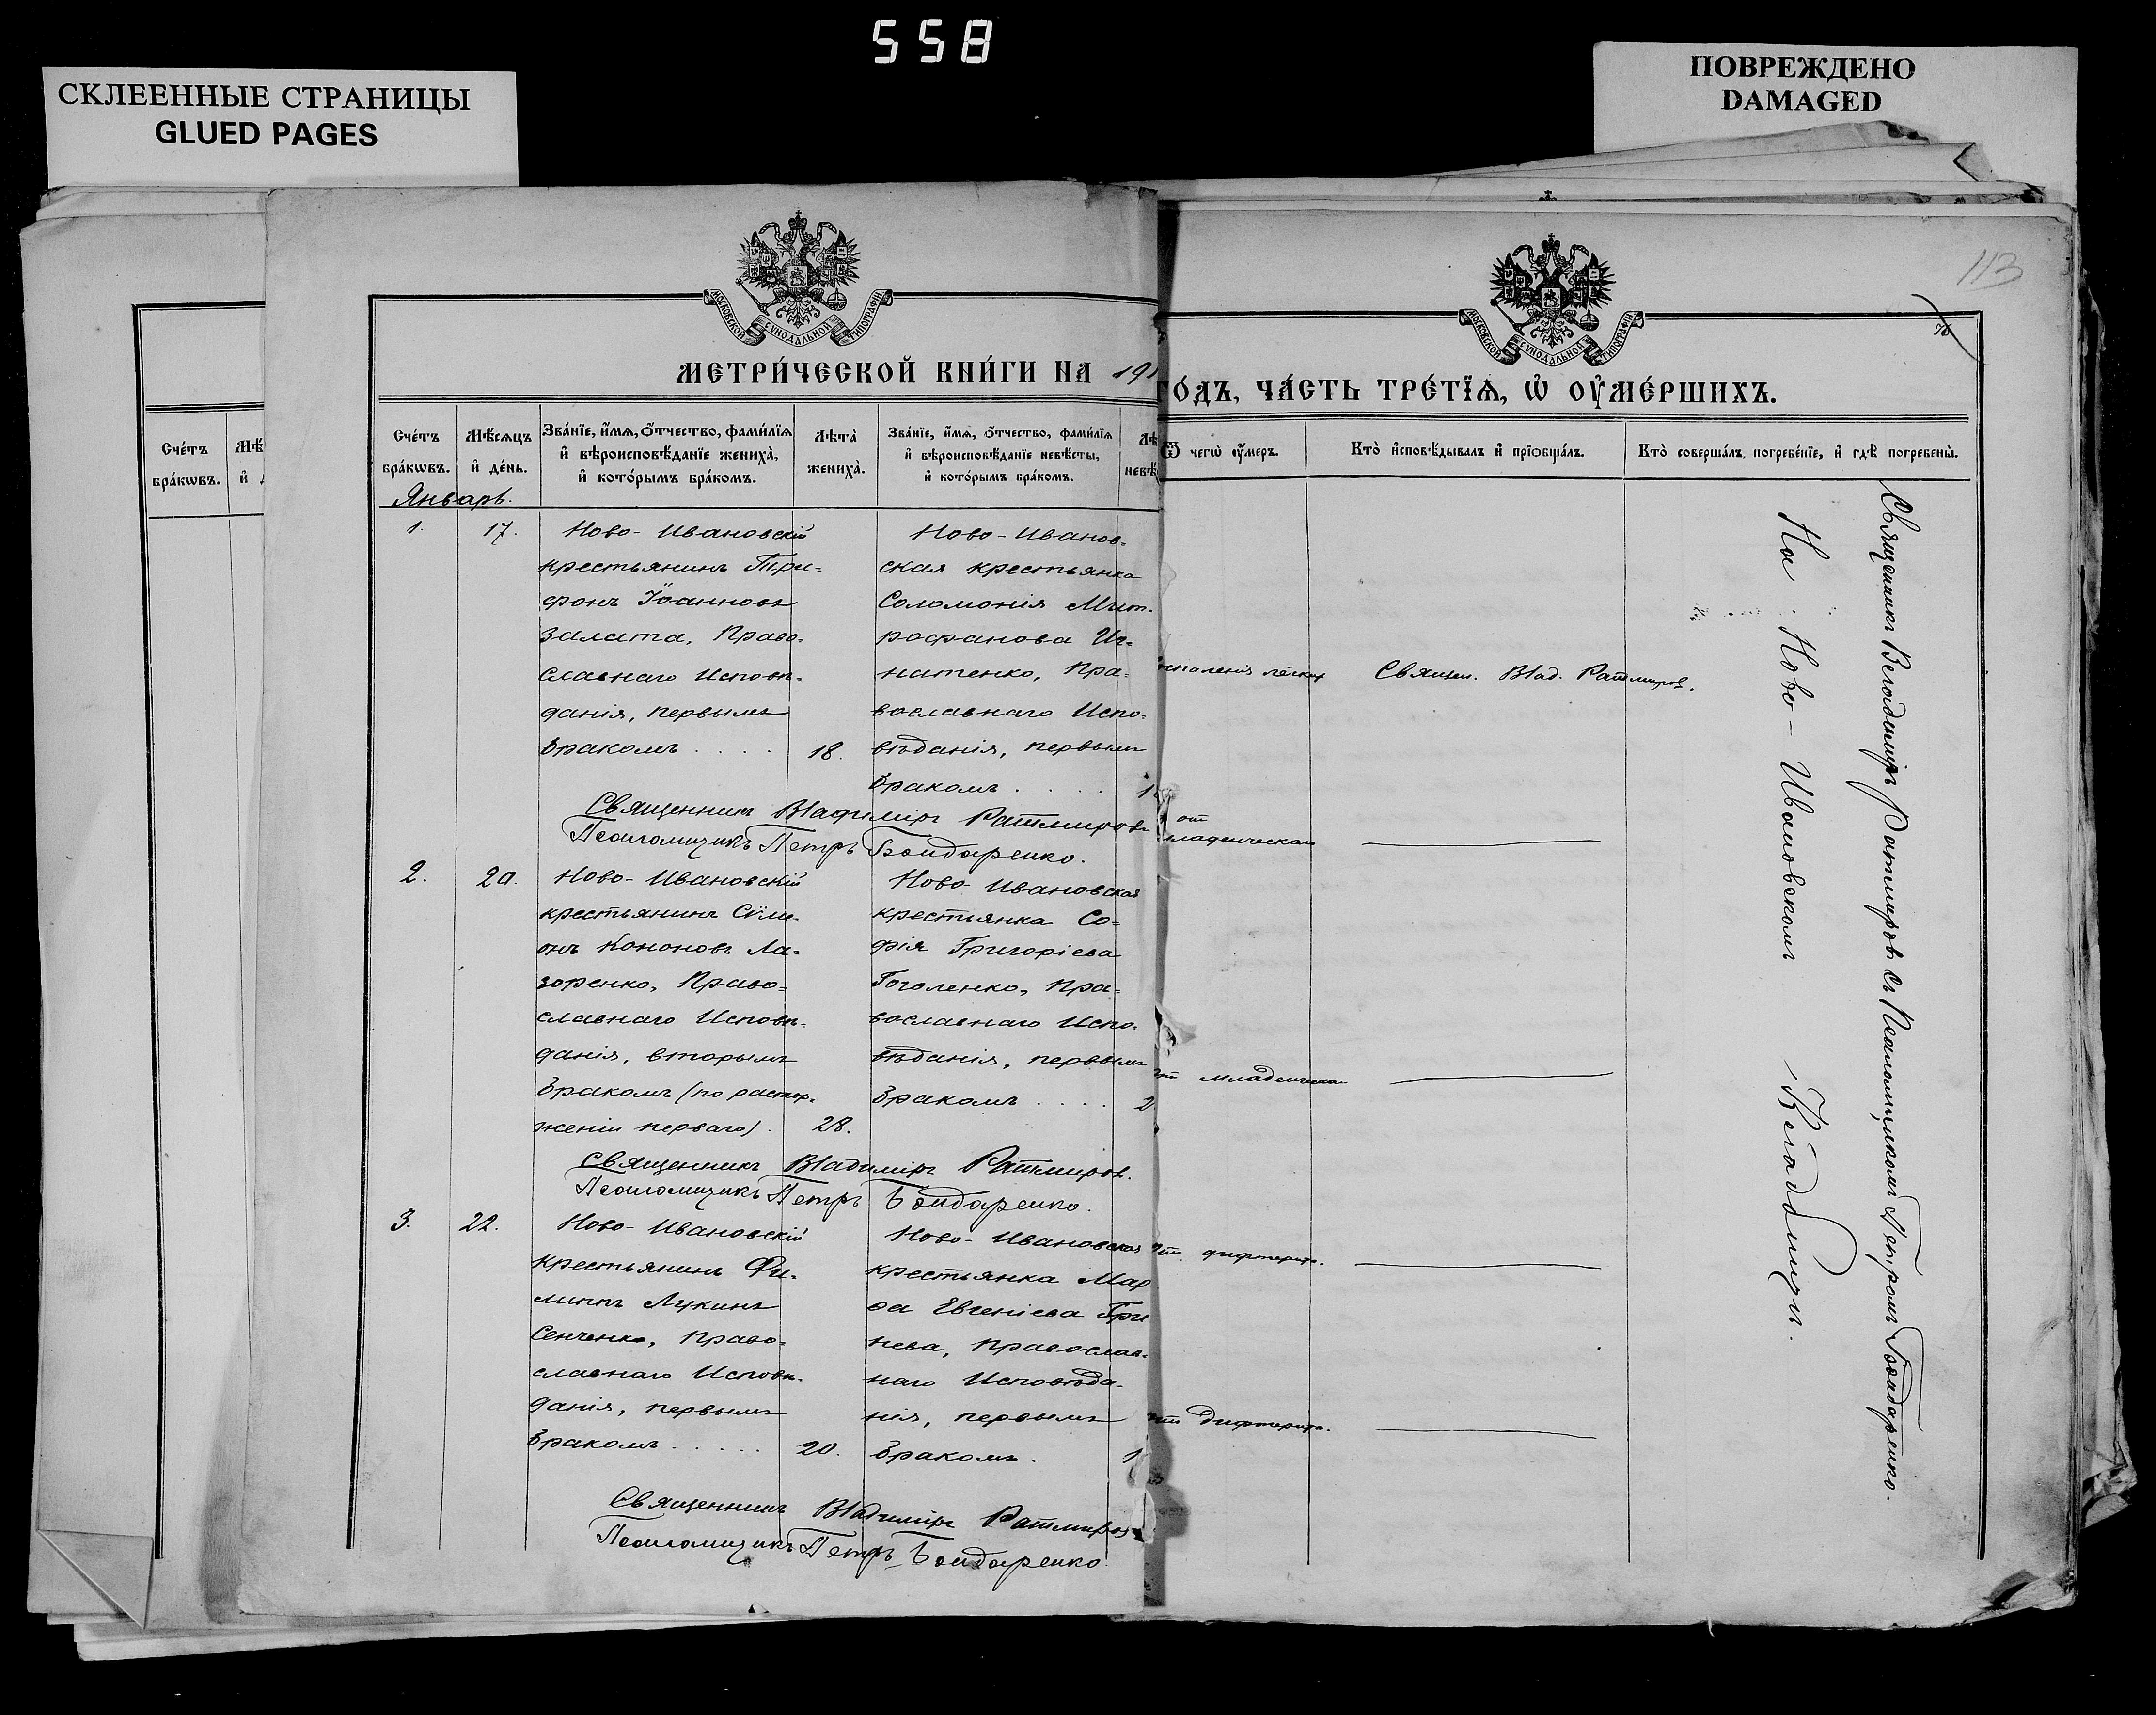 558
СКЛЕЕННЫЕ СТРАНИЦЫ
GLUED PAGES
ПОВРЕЖДЕНО
DAMAGED
Сче́тъ
бра́кѡвъ.
МОСКОВСКОЙ СѴНОДАЛЬНОЙ ТИПОГРАФІИ
МЕТРИ́ЧЕСКОЙ КНИ́ГИ НА 191
Сче́тъ
бра́кѡвъ.
Мѣ́сѧцъ
и҆ де́нь.
Зва́нїе, и҆́мѧ, ѻ҆́тчество, фами́лїѧ
и҆ вѣроисповѣ́данїе жениха̀,
и҆ кото́рымъ бра́комъ.
Лѣ́та
жениха̀.
Зва́нїе, и҆́мѧ, ѻ҆́тчество, фами́лїѧ
и҆ вѣроисповѣ́данїе невѣ́сты,
и҆ кото́рымъ бра́комъ.
Январь.
1.
17.
Ново-Ивановскій
крестьянинъ Три-
фонъ Іоанновъ
Залата, Право-
славнаго Исповѣ-
данія, первымъ
бракомъ . . . .
18.
Ново-Иванов-
ская крестьянка
Соломонія Мит-
рофанова Иг-
натенко, Пра-
вославнаго Испо-
вѣданія, первымъ
бракомъ . . . .
1
Священникъ Владиміръ Ратмировъ
Псаломщикъ Петръ Бондаренко.
2.
20.
Ново-Ивановскій
крестьянинъ Сѵме-
онъ Кононовъ Ла-
зоренко, Право-
славнаго Исповѣ-
данія, вторымъ
бракомъ (по растор-
женіи перваго).
28.
Ново-Ивановская
крестьянка Со-
фія Григоріева
Гоголенко, Пра-
вославнаго Испо-
вѣданія, первымъ
бракомъ . . . .
2
Священникъ Владиміръ Ратмиров.
Псаломщикъ Петръ Бондаренко.
3.
22.
Ново-Ивановскій
крестьянинъ Фи-
липпъ Лукинъ
Сенченко, Право-
славнаго Исповѣ-
данія, первымъ
бракомъ . . . . .
20.
Ново-Ивановская
крестьянка Мар
ѳа Евгеніева Гри
нева, Православ-
наго Исповѣда-
нія, первымъ
бракомъ.
1
Священникъ Владиміръ Ратмиров
Псаломщикъ Петръ Бондаренко.
113
76
МОСКОВСКОЙ СѴНОДАЛЬНОЙ ТИПОГРАФІИ
ГО́ДЪ, ЧА́СТЬ ТРЕ́ТЇѦ, Ѡ҆ ОУ҆МЕ́РШИХЪ.
Ѿ чегѡ̀ ᲂу҆́меръ.
Кто̀ и҆сповѣ́дывалъ и҆ прїѡбща́лъ.
Кто̀ соверша́лъ погребе́нїе, и҆ гдѣ̀ погребены̀.
воспаленія легкихъ
Священ. Влад. Ратмиров.
от
младенческая
от младенческая
от дифтерита.
от дифтерита.
Священникъ Владиміръ Ратмировъ съ Псаломщикомъ Петромъ Бондаренко.
На Ново-Ивановскомъ Кладбищѣ.